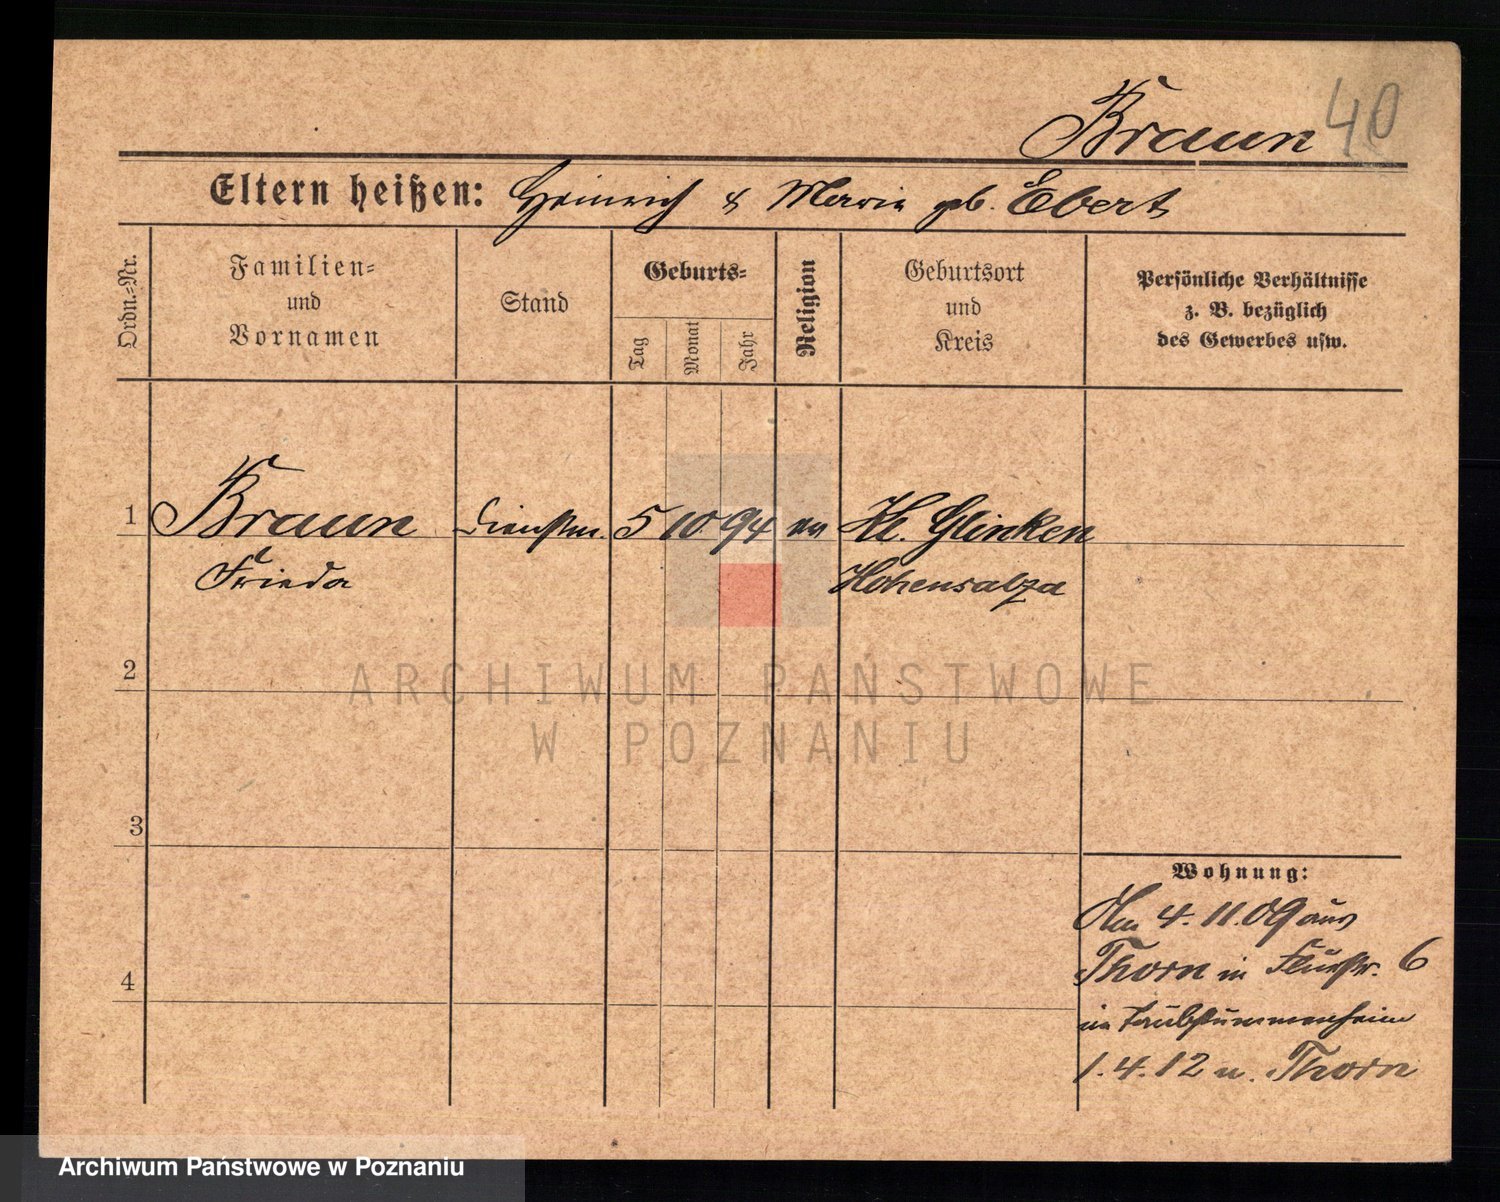 Braun 40
Eltern heißen: Heinrich & Marie geb. Ebert
Ordn.-Nr.
Familien-
und
Vornamen
Stand
Geburts-
Tag
Monat
Jahr
Religion
Geburtsort
und
Kreis
Persönliche Verhältnisse
z. B. bezüglich
des Gewerbes usw.
1 Braun Dienstm. 5 10 94 ev Kl. Glinken
Frieda Hohensalza
2
3
4
Wohnung:
Am 4.11.09 aus
Thorn in 6
im Taubstummenheim
1.4.12 n. Thorn
ARCHIWUM PAŃSTWOWE
W POZNANIU
Archiwum Państwowe w Poznaniu